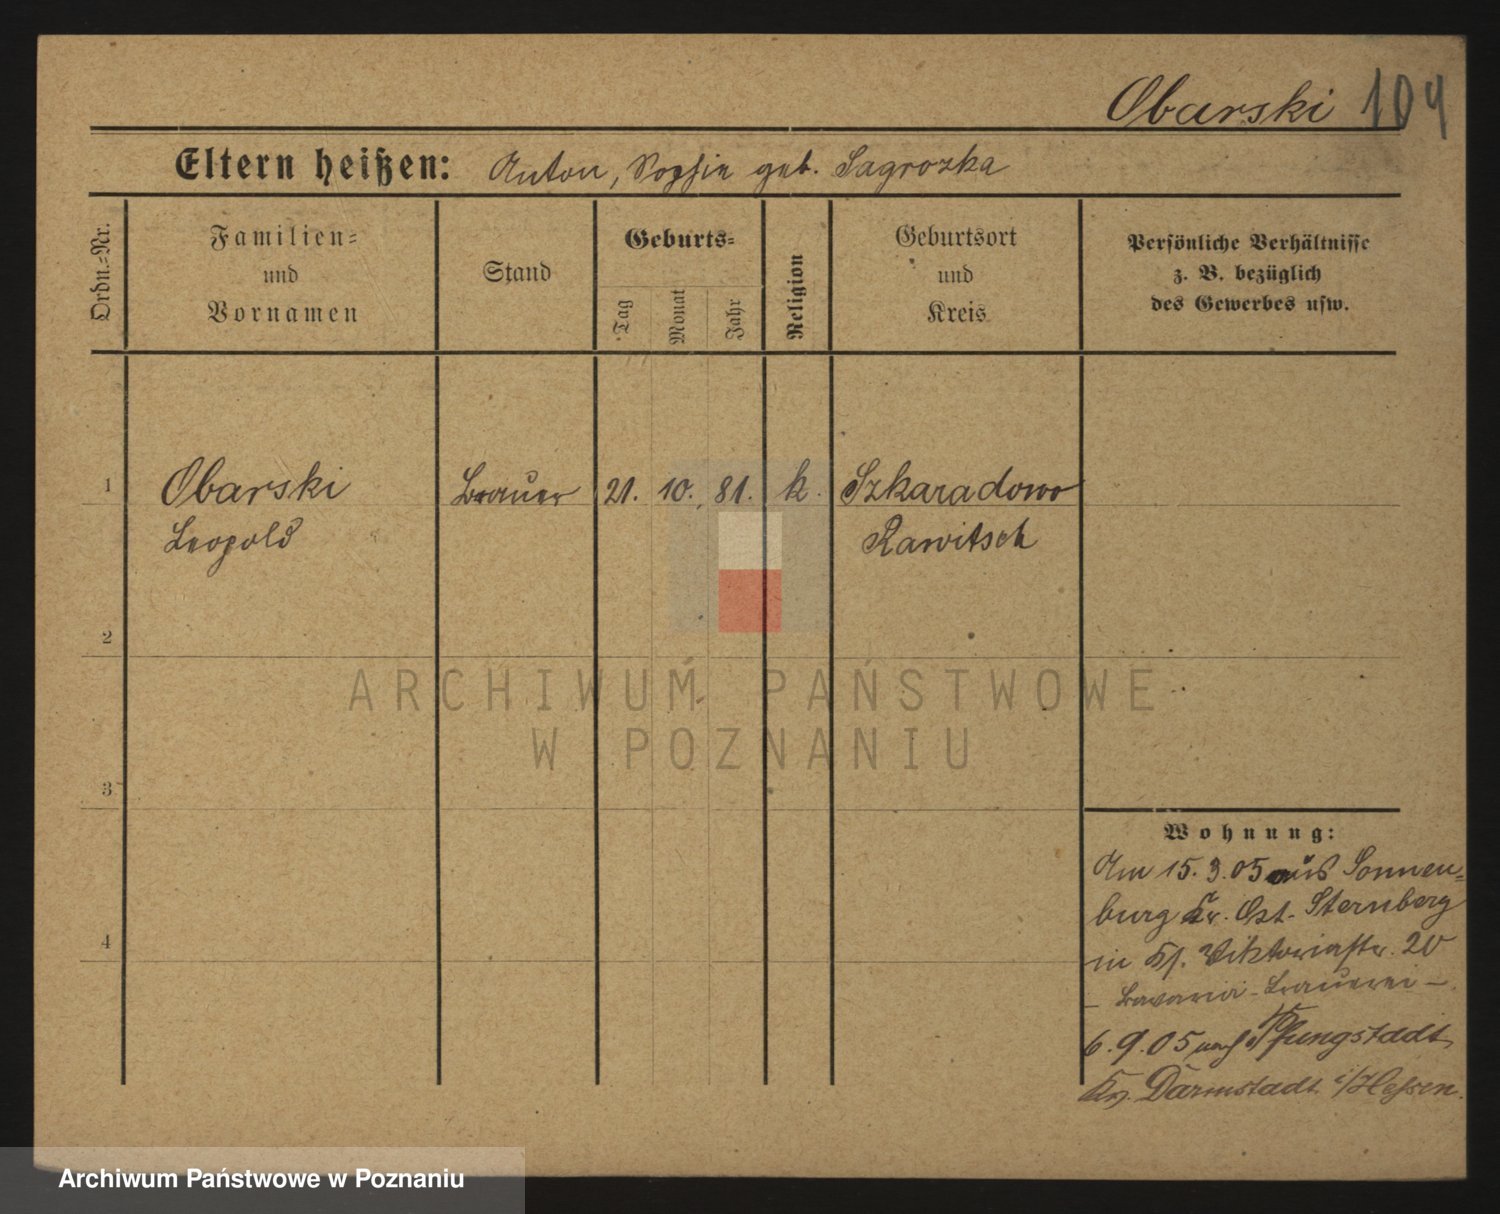 Obarski 104
Eltern heißen: Anton, Sophie geb. Sagrozka
Ordn.-Nr.
Familien-
und
Vornamen
Stand
Geburts-
Tag
Monat
Jahr
Religion
Geburtsort
und
Kreis
Persönliche Verhältnisse
z. B. bezüglich
des Gewerbes usw.
1 Obarski Brauer 21. 10. 81. k. Szkaradowo
Leopold Rawitsch
2
3
4
Wohnung:
Am 15.3.05 aus Sonnen-
burg Kr. Ost-Sternberg
in Viktoriastr. 20
- Bavaria-Brauerei -.
6.9.05 nach Pfungstadt
Kr. Darmstadt i/Hessen.
ARCHIWUM PAŃSTWOWE
W POZNANIU
Archiwum Państwowe w Poznaniu